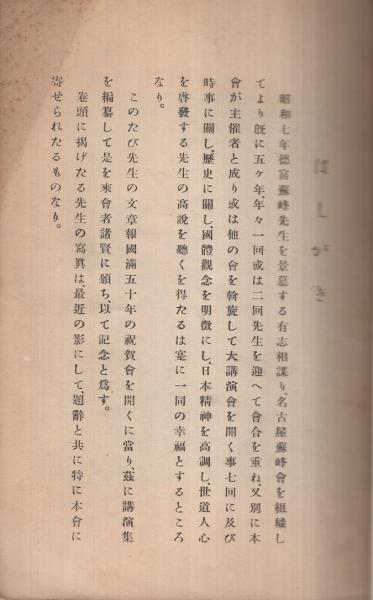 はしがき
昭和七年德富蘇峰先生を景慕する有志相謀り、名古屋蘇峰會を組織し
てより既に五ヶ年、年々一回或は二回先生を迎へて會合を重ね、又別に本
會が主催者と成り或は他の會を斡旋して大講演會を開く事七回に及び
時事に關し、歷史に關し、國體觀念を明徵にし、日本精神を高調し、世道人心
を啓發する先生の高說を聽くを得たるは寔に一同の幸福とするところ
なり。
このたび先生の文章報國滿五十年の祝賀會を開くに當り、茲に講演集
を編纂して是を來會者諸賢に頒ち、以て記念と爲す。
卷頭に揭げたる先生の寫眞は、最近の影にして、題辭と共に特に本會に
寄せられたるものなり。